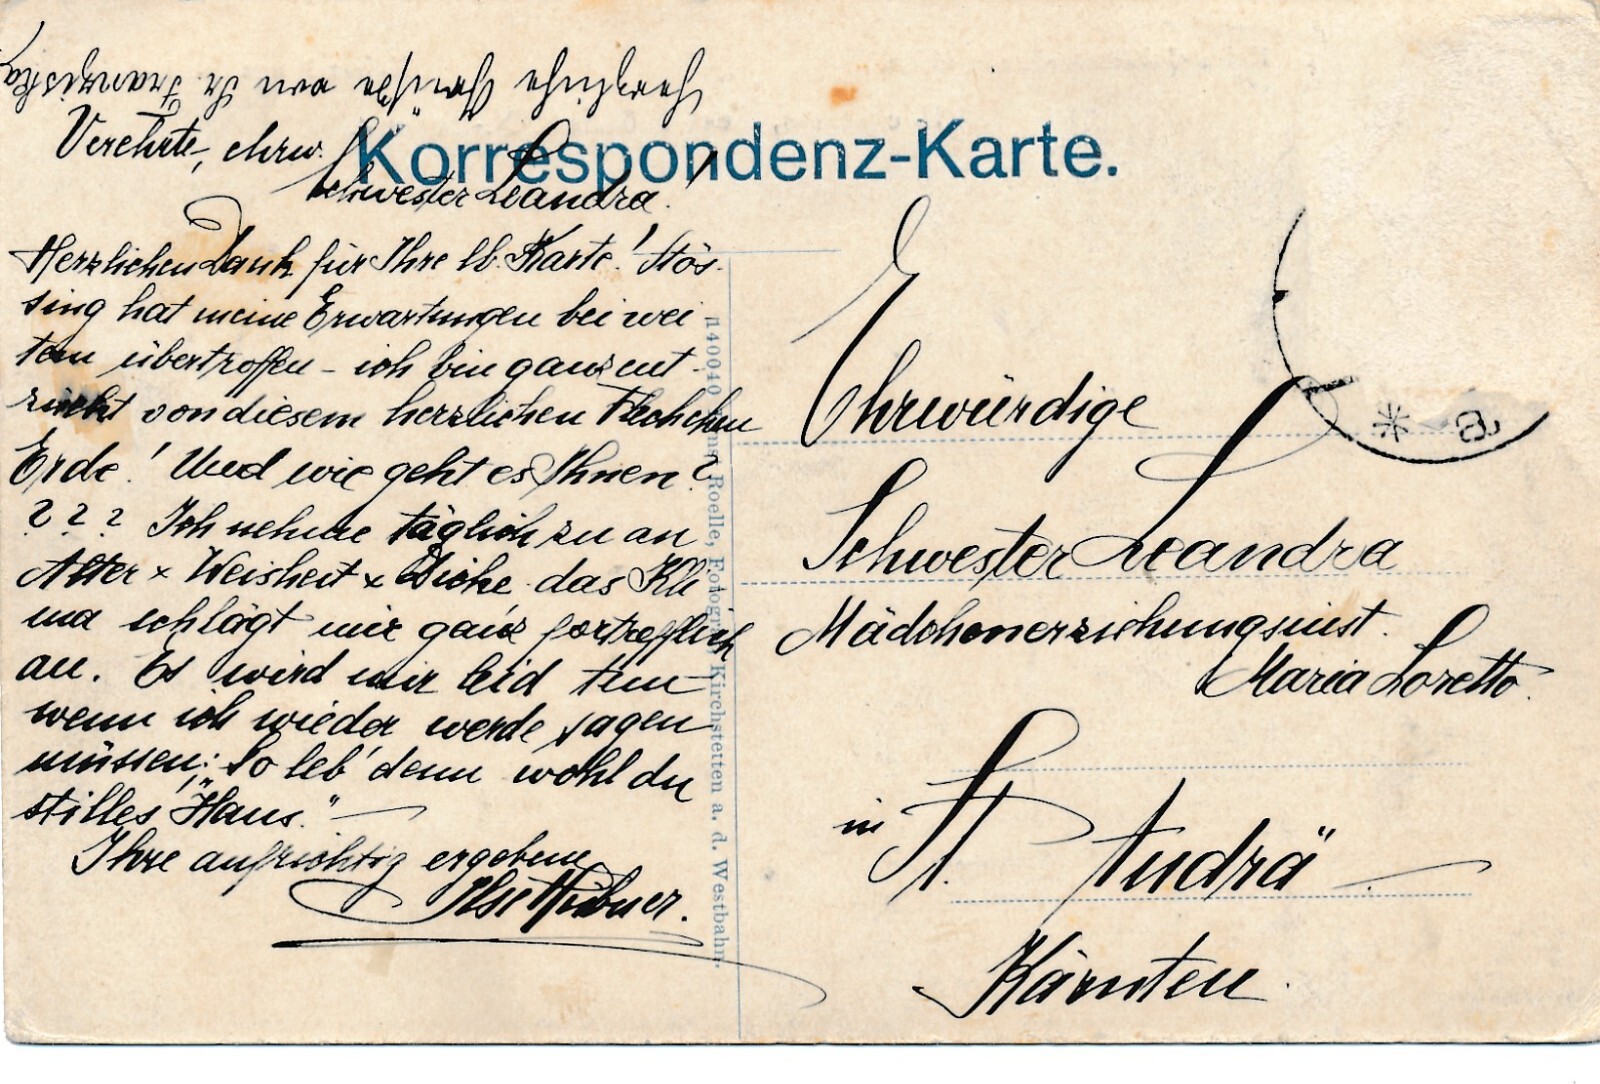 Herzliche Grüße von Sr. Franziska
Korrespondenz-Karte.
Verehrte, ehrw.
Schwester Leandra!
Herzlichen Dank für Ihre lb. Karte! Stös-
sing hat meine Erwartungen bei wei-
tem übertroffen – ich bin ganz ent-
zückt von diesem herzlichen Fleckchen
Erde! Und wie geht es Ihnen?
? ? ? Ich nehme täglich zu an
Alter x Weisheit x Dicke das Kli
ma schlägt mir ganz fortrefflich
an. Es wird mir leid tun
wenn ich wieder werde sagen
müssen: So leb' denn wohl du
stilles "Haus." —
Ihre aufrichtig ergebene
Ilse Hübner.
140040 Roelle, Fotograf Kirchstetten a. d. Westbahn.
Ehrwürdige
Schwester Leandra
Mädchenerziehungsinst.
Maria Loretto.
in St. Andrä
Kärnten.